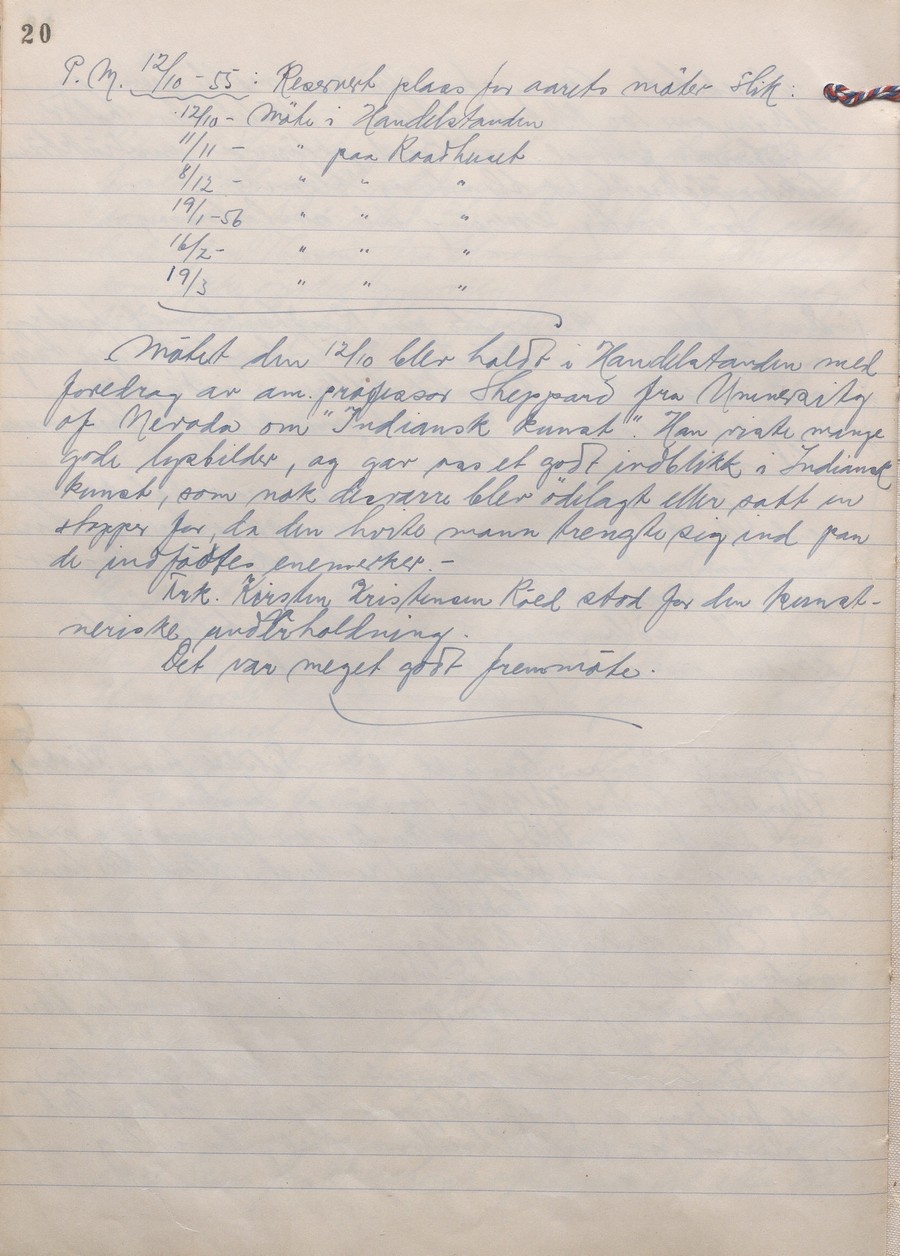 20
P.M. 12/10 - 55 : Reservert plass for aarets möter slik:
12/10 - Möte i Handelstanden
11/11 - " paa Raadhuset
8/12 - " " "
19/1-56 " " "
16/2- " " "
19/3 " " "
Mötet den 12/10 blev holdt i Handelstanden med
foredrag av am. professor Sheppard fra University
of Nevada om "Indiansk kunst". Han viste mange
gode lysbilder, og gav oss et godt indblikk i Indiansk
kunst, som nok desvarre blev ödelagt eller satt en
stopper for, da den hvite mann trengte sig ind paa
de indföttes enemerker. -
Frk. Kirsten Kristensen Röed stod for den kunst-
neriske underholdning.
Det var meget godt fremmöte.